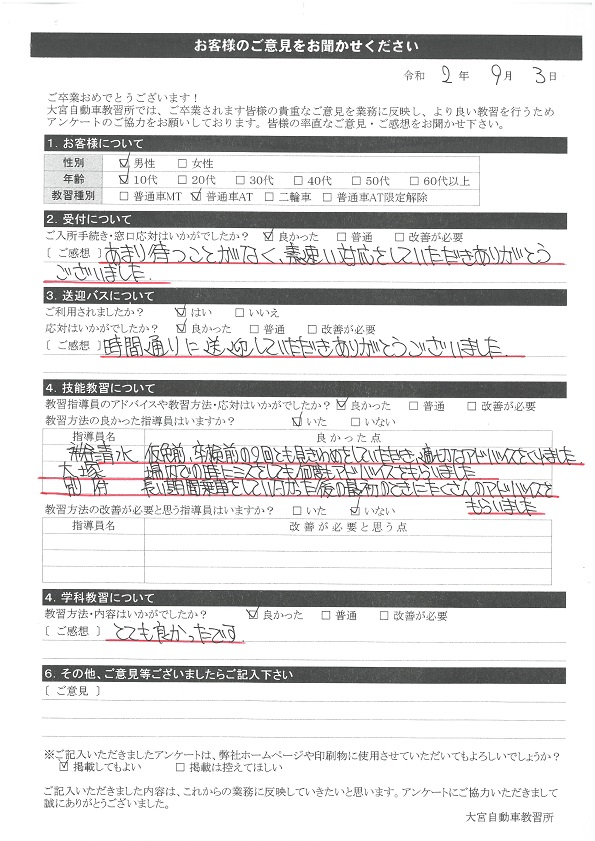 お客様のご意見をお聞かせください
令和 2 年 9 月 3 日
ご卒業おめでとうございます！
大宮自動車教習所では、ご卒業されます皆様の貴重なご意見を業務に反映し、より良い教習を行うため
アンケートのご協力をお願いしております。皆様の率直なご意見・ご感想をお聞かせ下さい。
1. お客様について
性別 ☑男性 □女性
年齢 ☑10代 □20代 □30代 □40代 □50代 □60代以上
教習種別 □普通車MT ☑普通車AT □二輪車 □普通車AT限定解除
2. 受付について
ご入所手続き・窓口応対はいかがでしたか？ ☑良かった □普通 □改善が必要
［ご感想］あまり待つことがなく、素速い対応をしていただきありがとう
ございました.
3. 送迎バスについて
ご利用されましたか？ ☑はい □いいえ
応対はいかがでしたか？ ☑良かった □普通 □改善が必要
［ご感想］時間通りに送迎していただきありがとうございました.
4. 技能教習について
教習指導員のアドバイスや教習方法・応対はいかがでしたか？ ☑良かった □普通 □改善が必要
教習方法の良かった指導員はいますか？ ☑いた □いない
指導員名 良かった点
清水 仮免前、卒検前の2回とも見きわめをしていただき、適切なアドバイスをくれました
大塚 場内での時にミスをしても何度もアドバイスをもらいました
別府 長い期間乗車をしていなかった後の最初のときにたくさんのアドバイスを
もらいました
教習方法の改善が必要と思う指導員はいますか？ □いた ☑いない
指導員名 改善が必要と思う点
4. 学科教習について
教習方法・内容はいかがでしたか？ ☑良かった □普通 □改善が必要
［ご感想］とても良かったです
6. その他、ご意見等ございましたらご記入下さい
［ご意見］
※ご記入いただきましたアンケートは、弊社ホームページや印刷物に使用させていただいてもよろしいでしょうか？
☑掲載してもよい □掲載は控えてほしい
ご記入いただきました内容は、これからの業務に反映していきたいと思います。アンケートにご協力いただきまして
誠にありがとうございました。
大宮自動車教習所